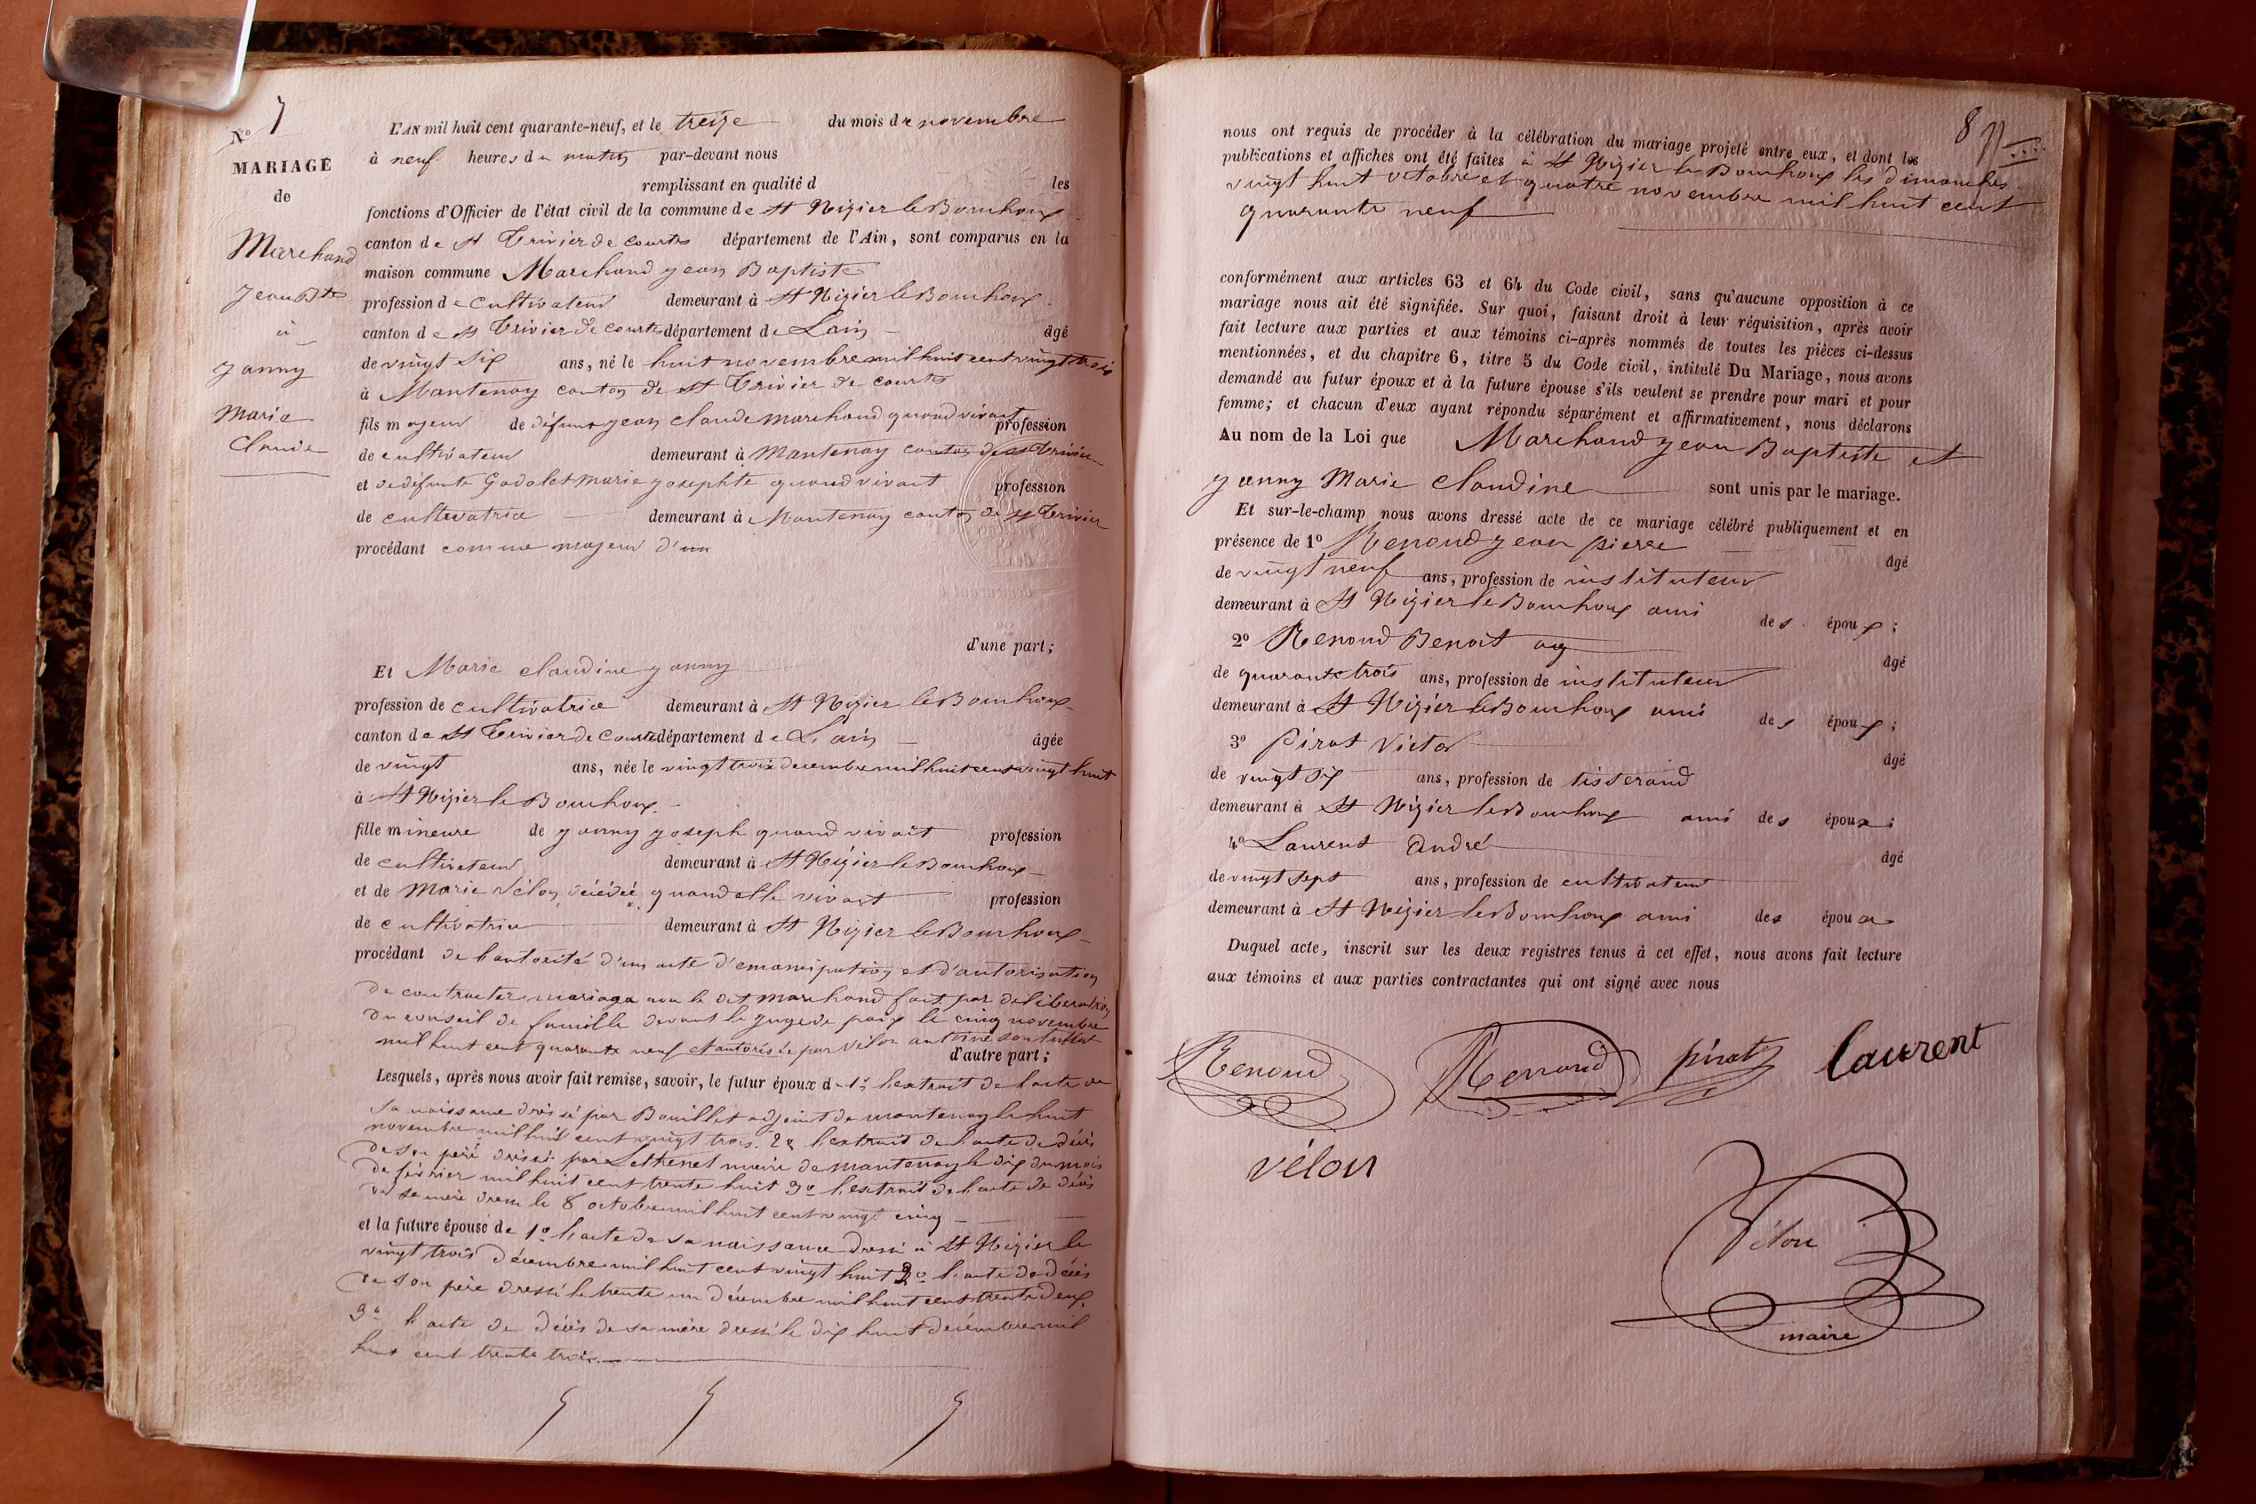 N° 7
MARIAGE
de
Marchand
Jean Bte
à
Janny
Marie
Claudine
L'AN mil huit cent quarante-neuf, et le treize du mois de novembre
à neuf heures du matin par-devant nous
remplissant en qualité d les
fonctions d'Officier de l'état civil de la commune de St Nizier le Bouchoux
canton de St Trivier de courtes département de l'Ain, sont comparus en la
maison commune Marchand jean Baptiste
profession de cultivateur demeurant à St Nizier le Bouchoux
canton de St Trivier de courtes département de Lain âgé
de vingt six ans, né le huit novembre mil huit cent vingt trois
à Mantenay canton de St Trivier de courtes
fils majeur de défunt jean claude marchand quand vivait profession
de cultivateur demeurant à Mantenay canton de St Trivier
et de défunte Godolet marie josephte quand vivait profession
de cultivatrice demeurant à Mantenay canton de St Trivier
procédant comme majeur d'un
d'une part;
Et Marie claudine janny
profession de cultivatrice demeurant à St Nizier le Bouchoux
canton de St Trivier de Courtes département de L'ain âgée
de vingt ans, née le vingt trois decembre mil huit cent vingt huit
à St Nizier le Bouchoux
fille mineure de janny joseph quand vivait profession
de cultivateur demeurant à St Nizier le Bouchoux
et de Marie Vélon décédée quand elle vivait profession
de cultivatrice demeurant à St Nizier le Bouchoux
procédant de l'autorité d'un acte d'emancipation et d'autorisation
de contracter mariage avec le dit marchand fait par déliberation
du conseil de famille devant le juge de paix le cinq novembre
mil huit cent quarante neuf et autorisée par Vélon antoine son tuteur
d'autre part;
Lesquels, après nous avoir fait remise, savoir, le futur époux de 1° l'extrait de l'acte de
sa naissance dressé par Bouillet adjoint de mantenay le huit
novembre mil huit cent vingt trois. 2° l'extrait de l'acte de décès
de son père dressé par maire de mantenay le dix du mois
de février mil huit cent trente huit 3° l'extrait de l'acte de décès
de sa mère dressé le 8 octobre mil huit cent vingt cinq
et la future épouse de 1° l'acte de sa naissance dressé à St Nizier le
vingt trois décembre mil huit cent vingt huit 2° l'acte de décès
de son père dressé le trente un décembre mil huit cent trente deux.
3° l'acte de décès de sa mère dressé le dix huit décembre mil
huit cent trente trois
8
nous ont requis de procéder à la célébration du mariage projeté entre eux, et dont les
publications et affiches ont été faites à St Nizier le Bouchoux les dimanches
vingt huit octobre et quatre novembre mil huit cent
quarante neuf
conformément aux articles 63 et 64 du Code civil, sans qu'aucune opposition à ce
mariage nous ait été signifiée. Sur quoi, faisant droit à leur réquisition, après avoir
fait lecture aux parties et aux témoins ci-après nommés de toutes les pièces ci-dessus
mentionnées, et du chapitre 6, titre 5 du Code civil, intitulé Du Mariage, nous avons
demandé au futur époux et à la future épouse s'ils veulent se prendre pour mari et pour
femme; et chacun d'eux ayant répondu séparément et affirmativement, nous déclarons
Au nom de la Loi que Marchand jean Baptiste et
janny Marie claudine sont unis par le mariage.
Et sur-le-champ nous avons dressé acte de ce mariage célébré publiquement et en
présence de 1° Renoud jean pierre âgé
de vingt neuf ans, profession de instituteur
demeurant à St Nizier le Bouchoux ami des époux;
2° Renoud Benoit ag âgé
de quarante trois ans, profession de instituteur
demeurant à St Nizier le Bouchoux ami des époux;
3° pirat Victor âgé
de vingt six ans, profession de tisserand
demeurant à St Nizier le Bouchoux ami des époux;
4° Laurent André âgé
de vingt sept ans, profession de cultivateur
demeurant à St Nizier le Bouchoux ami des époux
Duquel acte, inscrit sur les deux registres tenus à cet effet, nous avons fait lecture
aux témoins et aux parties contractantes qui ont signé avec nous
Renoud Renoud pirat laurent
vélon
Vélon
maire